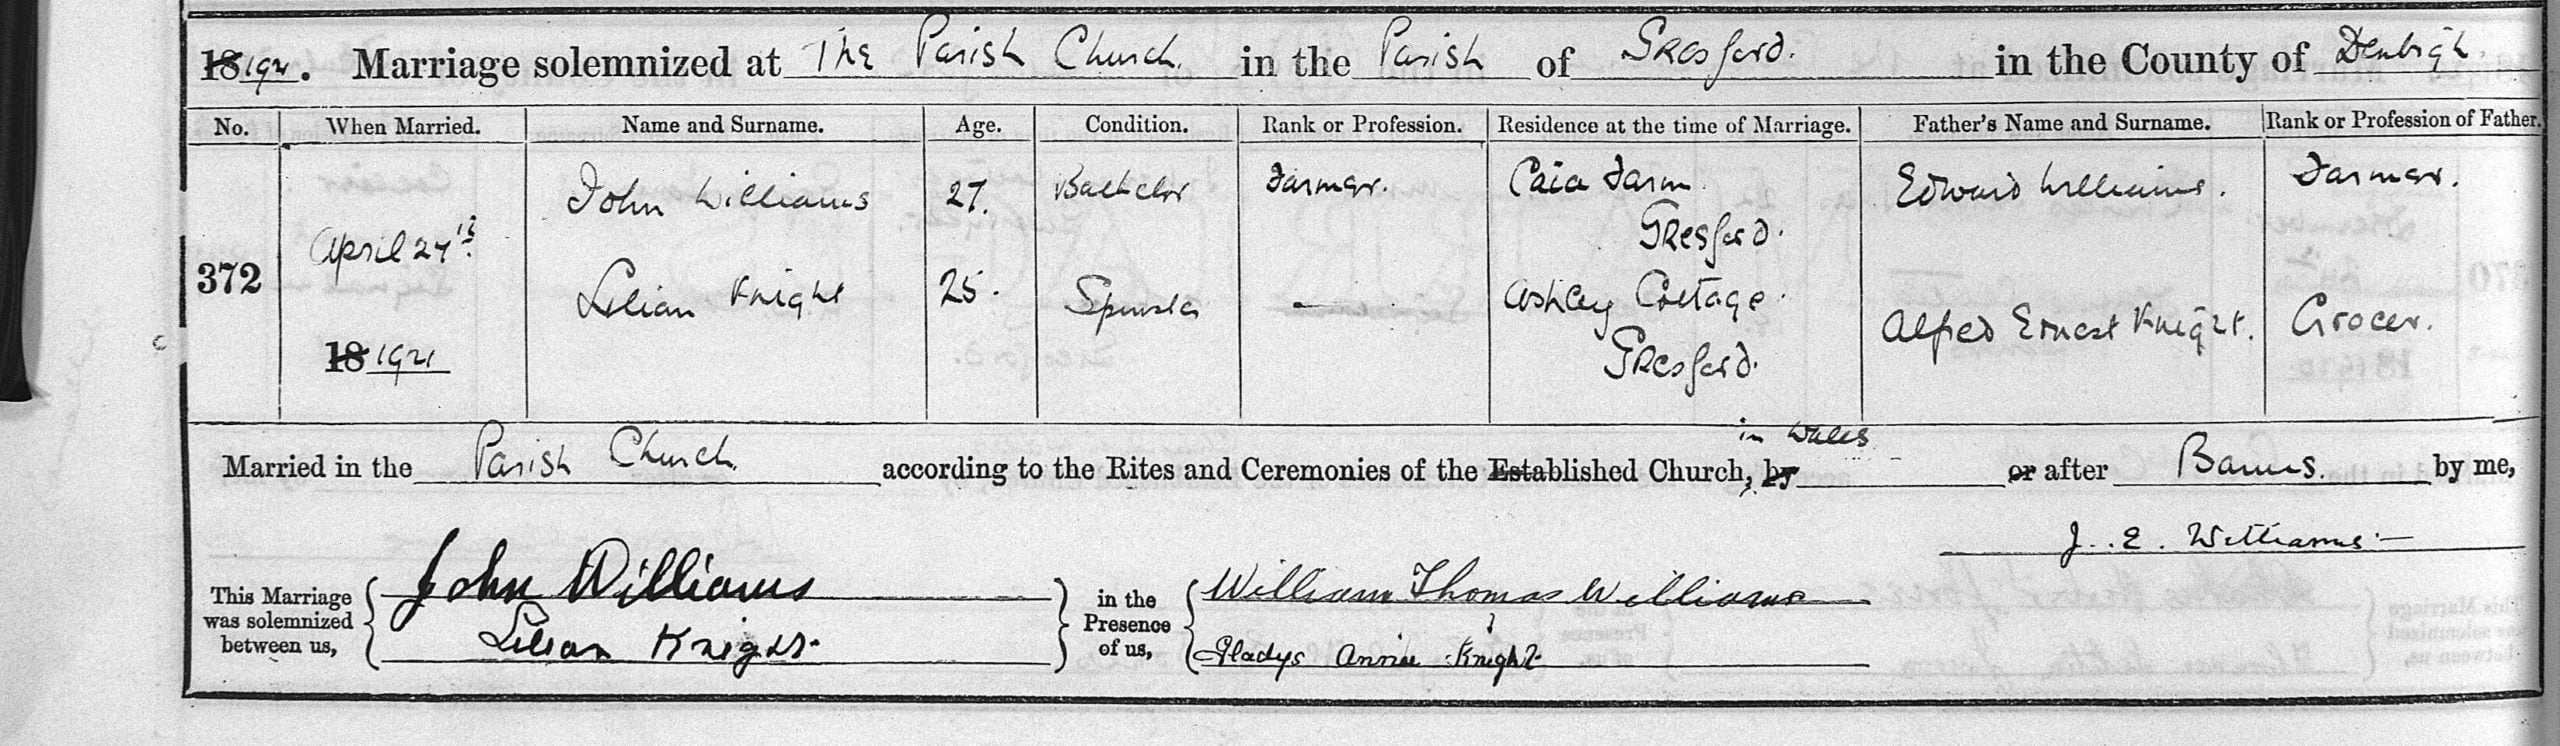 18 1921. Marriage solemnized at The Parish Church. in the Parish of Gresford. in the County of Denbigh
No. When Married. Name and Surname. Age. Condition. Rank or Profession. Residence at the time of Marriage. Father's Name and Surname. Rank or Profession of Father.
John Williams 27. Bachelor Farmer. Caia Farm Edward Williams. Farmer.
Gresford.
372 April 27th
Lilian Knight 25. Spinster — Ashley Cottage. Alfred Ernest Knight. Grocer.
18 1921 Gresford.
in Wales
Married in the Parish Church. according to the Rites and Ceremonies of the Established Church, by or after Banns. by me,
J. E. Williams
This Marriage was solemnized between us, John Williams in the Presence of us, William Thomas Williams
Lilian Knight. Gladys Annie Knight.